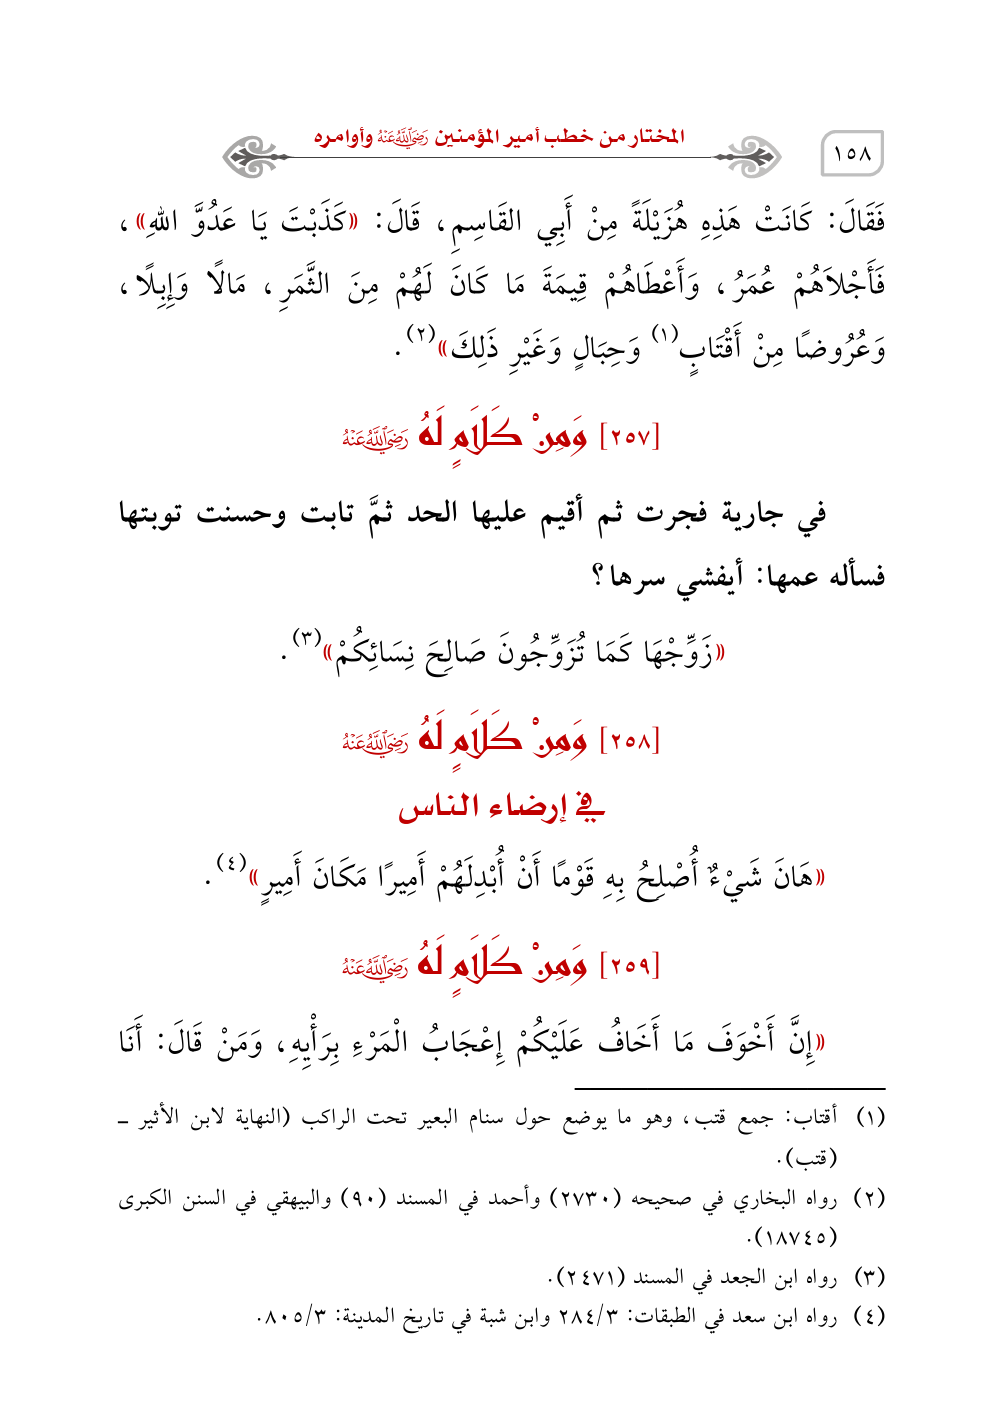 ١٥٨
المختار من خطب أمير المؤمنين رَضِيَ اللَّهُ عَنْهُ وأوامره
فَقَالَ: كَانَتْ هَذِهِ هُزَيْلَةً مِنْ أَبِي القَاسِمِ، قَالَ: «كَذَبْتَ يَا عَدُوَّ اللهِ»،
فَأَجْلاَهُمْ عُمَرُ، وَأَعْطَاهُمْ قِيمَةَ مَا كَانَ لَهُمْ مِنَ الثَّمَرِ، مَالًا وَإِبِلًا،
وَعُرُوضًا مِنْ أَقْتَابٍ(١) وَحِبَالٍ وَغَيْرِ ذَلِكَ»(٢).
[٢٥٧] وَمِنْ كَلَامٍ لَهُ رَضِيَ اللَّهُ عَنْهُ
في جارية فجرت ثم أقيم عليها الحد ثمَّ تابت وحسنت توبتها
فسأله عمها: أيفشي سرها؟
«زَوِّجْهَا كَمَا تُزَوِّجُونَ صَالِحَ نِسَائِكُمْ»(٣).
[٢٥٨] وَمِنْ كَلَامٍ لَهُ رَضِيَ اللَّهُ عَنْهُ
في إرضاء الناس
«هَانَ شَيْءٌ أُصْلِحُ بِهِ قَوْمًا أَنْ أُبْدِلَهُمْ أَمِيرًا مَكَانَ أَمِيرٍ»(٤).
[٢٥٩] وَمِنْ كَلَامٍ لَهُ رَضِيَ اللَّهُ عَنْهُ
«إِنَّ أَخْوَفَ مَا أَخَافُ عَلَيْكُمْ إِعْجَابُ الْمَرْءِ بِرَأْيِهِ، وَمَنْ قَالَ: أَنَا
(١) أقتاب: جمع قتب، وهو ما يوضع حول سنام البعير تحت الراكب (النهاية لابن الأثير ـ
(قتب).
(٢) رواه البخاري في صحيحه (٢٧٣٠) وأحمد في المسند (٩٠) والبيهقي في السنن الكبرى
(١٨٧٤٥).
(٣) رواه ابن الجعد في المسند (٢٤٧١).
(٤) رواه ابن سعد في الطبقات: ٢٨٤/٣ وابن شبة في تاريخ المدينة: ٨٠٥/٣.